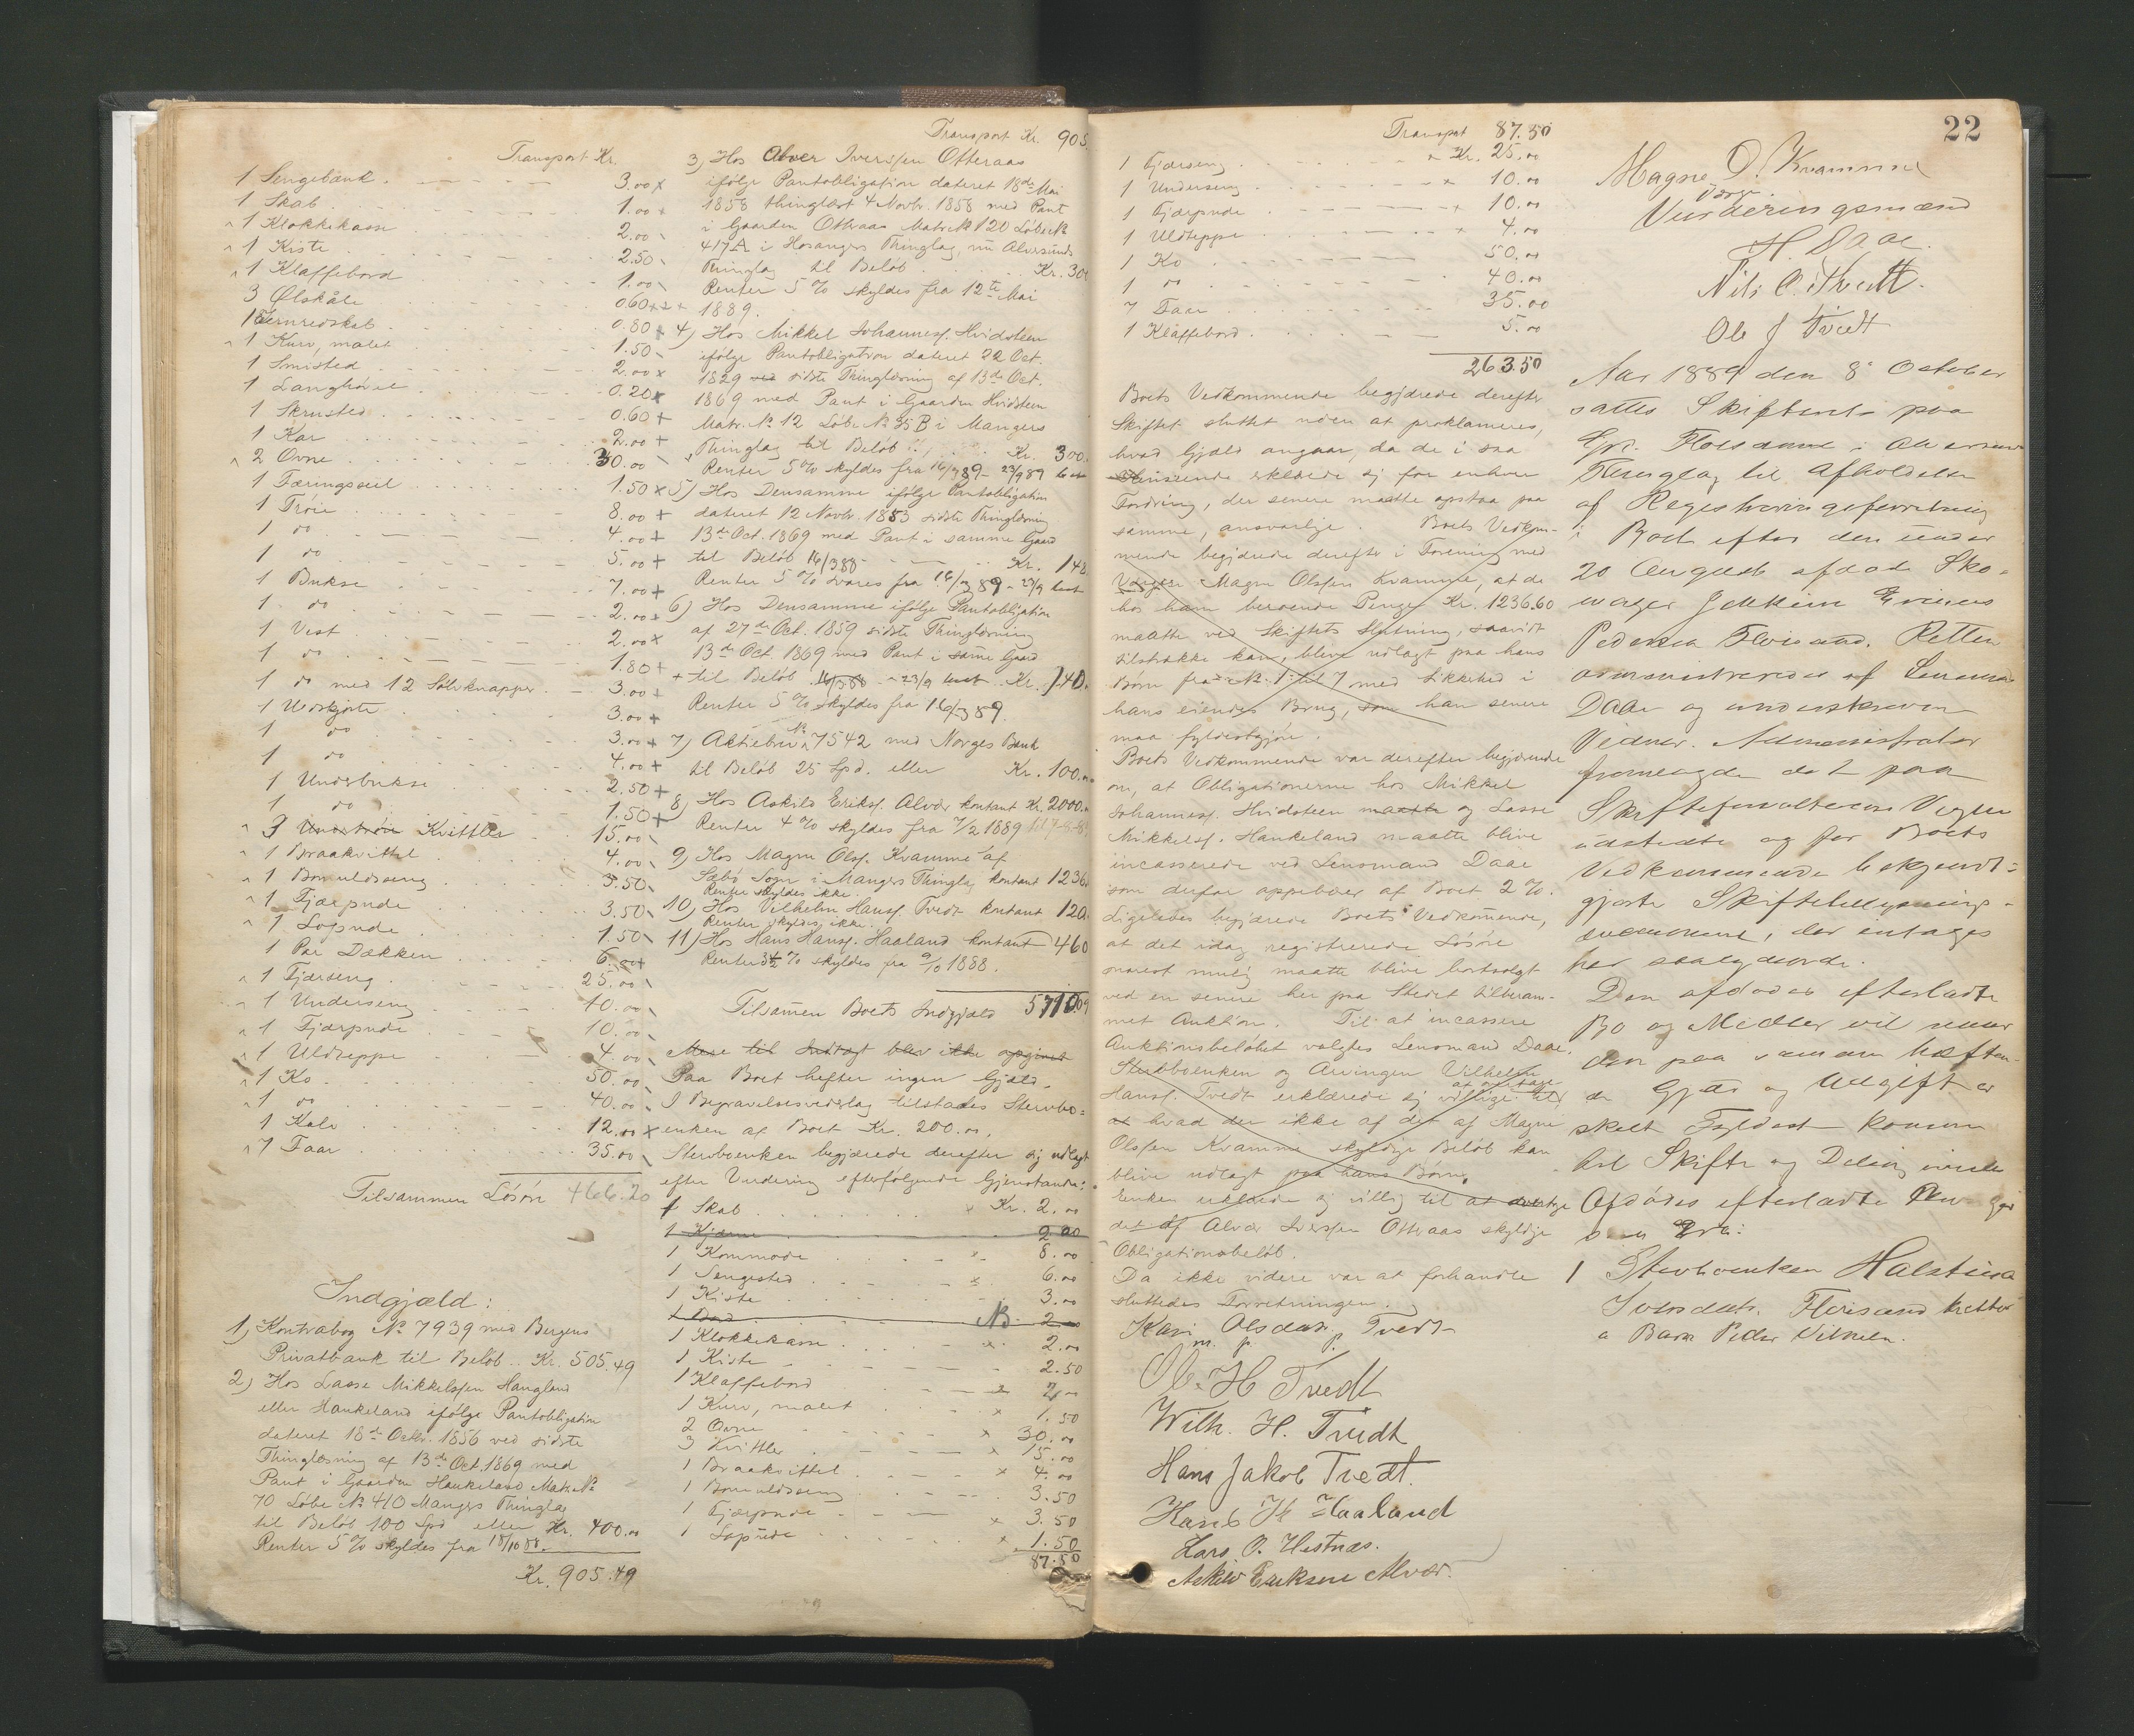 Transport Kr.
1 Sengebænk . 3.00 x
1 Skab 1.00 x
1 Klokkekasse 2.00
1 Kiste 2.50
1 Klaffebord 1.00
3 Ølskåle 0.60 x x x
1 Jernredskab 0.80 x
1 Kurv, malet 1.50
1 Smisted 2.00 x
1 Langhøvel 0.20 x
1 Skrusted 0.60 +
1 Kar 2.00 +
2 Ovne 30.00
1 Færingseil 1.50 x
1 Trøie 8.00 +
1 do 4.00 +
1 do 5.00 +
1 Bukse 7.00 +
1 do 2.00 +
1 Vest 2.00 x
1 do 1.80 +
1 do med 12 Sølvknapper 3.00 +
1 Uldskjorte 3.00 +
1 do 3.00 +
1 do 4.00 +
1 Underbukse 2.50 +
1 do 1.50 +
3 Undertrøie Kvittler 15.00
1 Braakvittel 4.00
1 Bomuldsseng 3.50
1 Fjærpude 3.50
1 Lopude 1.50
1 Par Dækken 6.00 +
1 Fjærseng 25.00
1 Underseng 10.00
1 Fjærpude 10.00
1 Uldteppe 4.00
1 Ko 50.00
1 do 40.00
1 Kalv 12.00 x
7 Faar 35.00
Tilsammen Løsøre 466.20
Indgjæld:
1) Kontrabog No 7939 med Bergens
Privatbank til Beløb .. Kr. 505.49
2) Hos Lasse Mikkelsen Haugland
eller Hankeland ifølge Pantobligation
dateret 18de Octbr. 1856 ved sidste
Thinglæsning af 13de Oct. 1869 med
Pant i Gaarden Hankeland Matr. No
70 Løbe No 410 Mangers Thinglag
til Beløb 100 Spd eller Kr. 400.00
Renter 5 % skyldes fra 18/10 88.
Kr. 905.49
Transport Kr. 905.
3) Hos Alver Iversen Otteraas
ifølge Pantobligation dateret 18de Mai
1858 thinglæst 4 Novbr. 1858 med Pant
i Gaarden Otteraas Matr. No 120 Løbe No
417 A i Hosangers Thinglag, nu Alversunds
Thinglag til Beløb Kr. 30
Renter 5 % skyldes fra 12te Mai
1889.
4) Hos Mikkel Johannesf. Hvidsteen
ifølge Pantobligation dateret 22 Oct.
1829 ved sidste Thinglæsning af 13de Oct.
1869 med Pant i Gaarden Hvidsteen
Matr. No 12 Løbe No 35 B i Mangers
Thinglag til Beløb Kr. 300.
Renter 5 % skyldes fra 16/3 89 - 23/9 89
5) Hos Densamme ifølge Pantobligation
dateret 12 Novbr. 1853 sidste Thinglæsning
13de Oct. 1869 med Pant i samme Gaard
til Beløb 16/3 88 Kr. 148
Renter 5 % svares fra 16/3 89 - 23/9
6) Hos Densamme ifølge Pantobligation
af 27de Oct. 1859 sidste Thinglæsning
13de Oct. 1869 med Pant i samme Gaard
til Beløb 16/3 88 - 23/9 Kr. 140.
Renter 5 % skyldes fra 16/3 89.
7) Aktiebrev No 7542 med Norges Bank
til Beløb 25 Spd. eller Kr. 100.
8) Hos Askild Eriksf. Alvær kontant Kr. 2000.
Renter 4 % skyldes fra 7/2 1889
9) Hos Magne Olsf. Kvamme af
Sæbø Sogn i Mangers Thinglag kontant 1236
Renter skyldes ikke.
10) Hos Vilhelm Hansf. Tvedt kontant 120.
Renter skyldes ikke.
11) Hos Hans Hansf. Haaland kontant 460
Renter 3½ % skyldes fra 9/10 1888.
Tilsammen Boets Indgjæld 5710.09
Mere til Indtægt blev ikke opgivet
Paa Boet hefter ingen Gjæld.
I Begravelsesvederlag tilstades Stervbo=
enken af Boet Kr. 200.00.
Stervboenken begjærede derefter sig udlagt
efter Vurdering efterfølgende Gjenstande:
1 Skab x Kr. 2.00
1 Kjærne 2.00
1 Kommode x 8.00
1 Sengested x 6.00
1 Kiste 3.00
1 Bord 2.00
1 Klokkekasse x 2.00
1 Kiste 2.50
1 Klaffebord x 2.00
1 Kurv, malet x 1.50
2 Ovne x 30.00
3 Kvittler x 15.00
1 Braakvittel x 4.00
1 Bomuldsseng 3.50
1 Fjærpude x 3.50
1 Lopude x 1.50
87.50
22
Transport 87.50
1 Fjærseng x Kr. 25.00
1 Underseng x 10.00
1 Fjærpude x 10.00
1 Uldteppe x 4.00
1 Ko 50.00
1 do 40.00
7 Faar 35.00
1 Klaffebord 5.00
263.50
Boets Vedkommende begjærede derefter
Skiftet sluttet uden at proklameres,
hvad Gjæld angaar, da de i saa
Henseende erklærede sig for enhver
Fordring, der senere maatte opstaa paa
samme, ansvarlige. Boets Vedkom-
mende begjærede derefter i Forening med
Værgen Magne Olsen Kvamme, at de
hos ham beroende Penge Kr. 1236.60
maatte ved Skiftets Slutning, saavidt
tilstrække kan, blive udlagt paa hans
Børn fra No. 1 til 7 med Sikkerhed i
hans eiende Brug, som han senere
maa fyldestgjøre.
Boets Vedkommende var derefter begjærende
om, at Obligationerne hos Mikkel
Johannesf. Hvidsteen maatte og Lasse
Mikkelsf. Hankeland maatte blive
incasserede ved Lensmand Daae
som derfor oppebærer af Boet 2 %.
Ligeledes begjærede Boets Vedkommende,
at det idag registrerede Løsøre
snarest mulig maatte blive bortsolgt
ved en senere her paa Stedet tilberam-
met Auktion. Til at incassere
Auktionsbeløbet valgtes Lensmand Daae.
Stervboenken og Arvingen Vilhelm
Hansf. Tvedt erklærede sig villige til
at hvad der ikke af det af Magne
Olsen Kvamme skyldige Beløb kan
blive udlagt paa hans Børn.
Enken erklærede sig villig til at overtage
det af Alver Iversen Otteraas skyldige
Obligationsbeløb.
Da ikke videre var at forhandle
sluttedes Forretningen.
Kari Olsdatr. Tvedt
m. p. p.
Ole H Tvedt
Wilh. H. Tvedt
Hans Jakob Tvedt
Hans H Haaland
Lars O. Hestnæs.
Askild Eriksen Alvær.
Magne O. Kvamme
Værge.
Vurderingsmænd
H. Daae.
Nils O. Tvedt.
Ole J Tvedt
Aar 1889 den 8de October
sattes Skifteret paa
Gpl. Floisand i Alversund
Thinglag til Afholdelse
af Registreringsforretning
i Boet efter den under
20 August afdøde Sko-
mager
Pedersen Floisand. Retten
administreredes af Lensmand
Daae og underskrevne
Vidner. Administrator
fremlagde det paa
Skifteforvalterens Vegne
udstedte og for Boets
Vedkommende bekjendt=
gjorte Skiftetillysnings-
document, der indtages
her saalydende.
Den afdødes efterladte
Bo og Midler vil under
den paa samme hæften-
de Gjæld og Udgifter
skelt Fyldest komme
til Skifte og Deling imellem
Afdødes efterladte Enke
1 Stervboenken Halstina
Floisand
a Barn Peder Vilhelm.